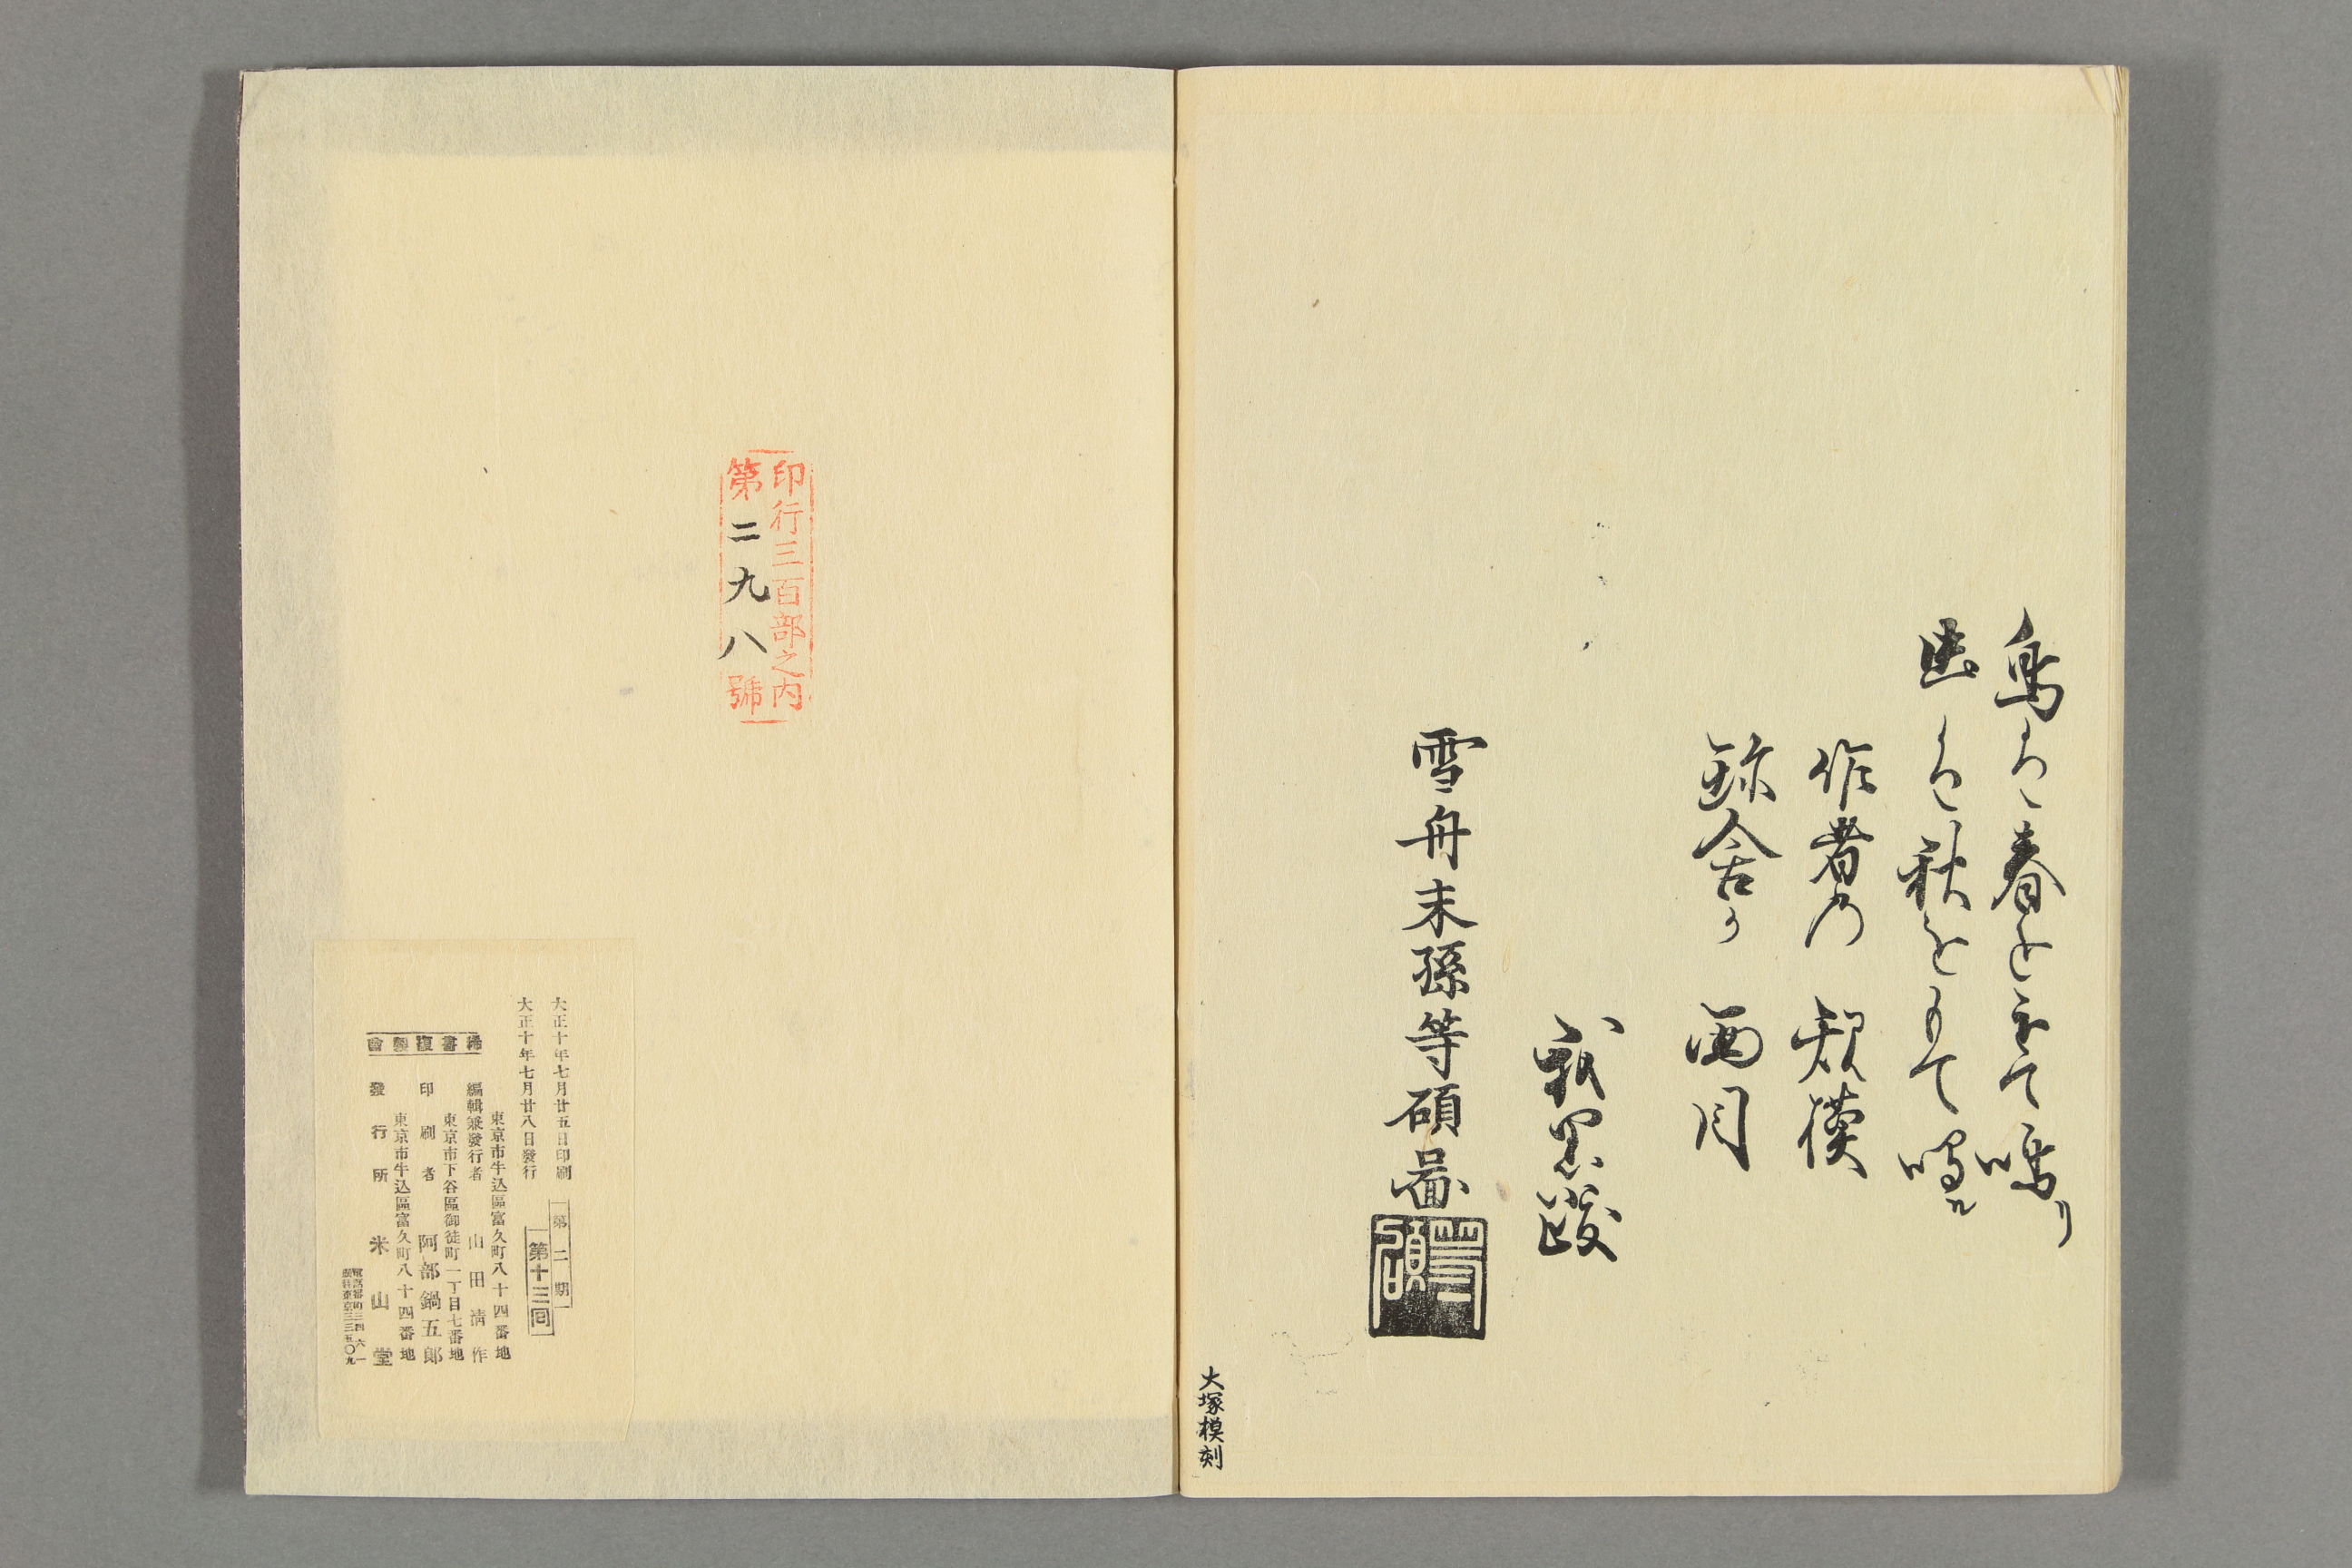 鳥は春をもて鳴り
虫は秋をもて鳴ル
作者の
雪舟末孫等碩圖
等碩
大塚模刻
印行三百部之内
第二九八號
大正十年七月廿五日印刷
大正十年七月廿八日發行
第二期
第十三回
東京市牛込區富久町八十四番地
編輯兼發行者 山田清作
東京市下谷區御徒町一丁目七番地
印刷者 阿部鍋五郎
東京市牛込區富久町八十四番地
發行所 米山堂
稀書複製會